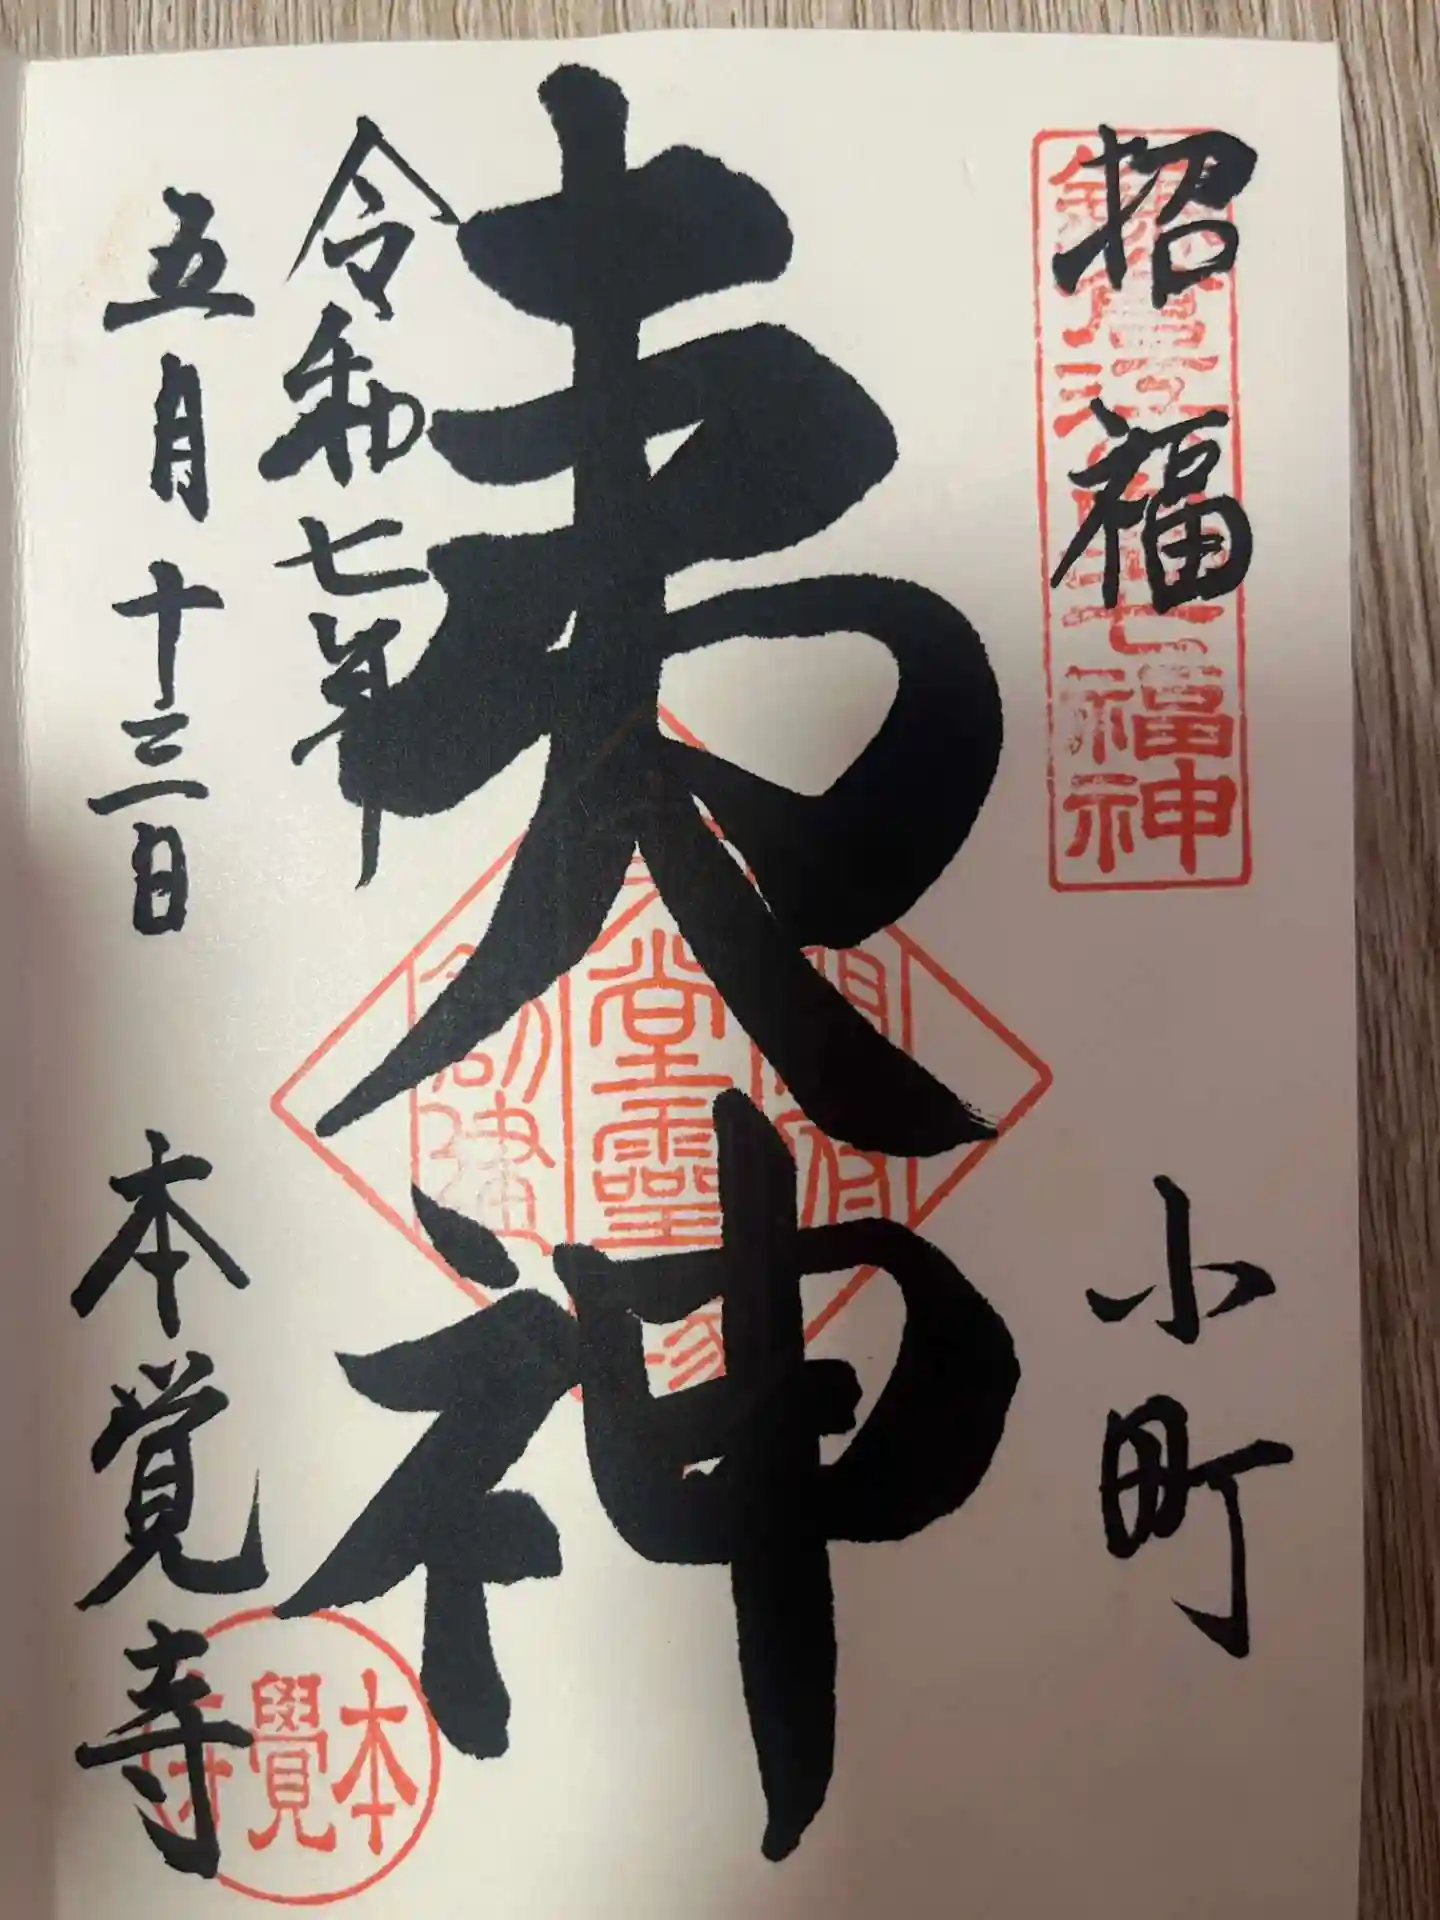 招福
小町
夷神
令和七年
五月十三日
本覚寺
七福神
堂霊
本覺寺